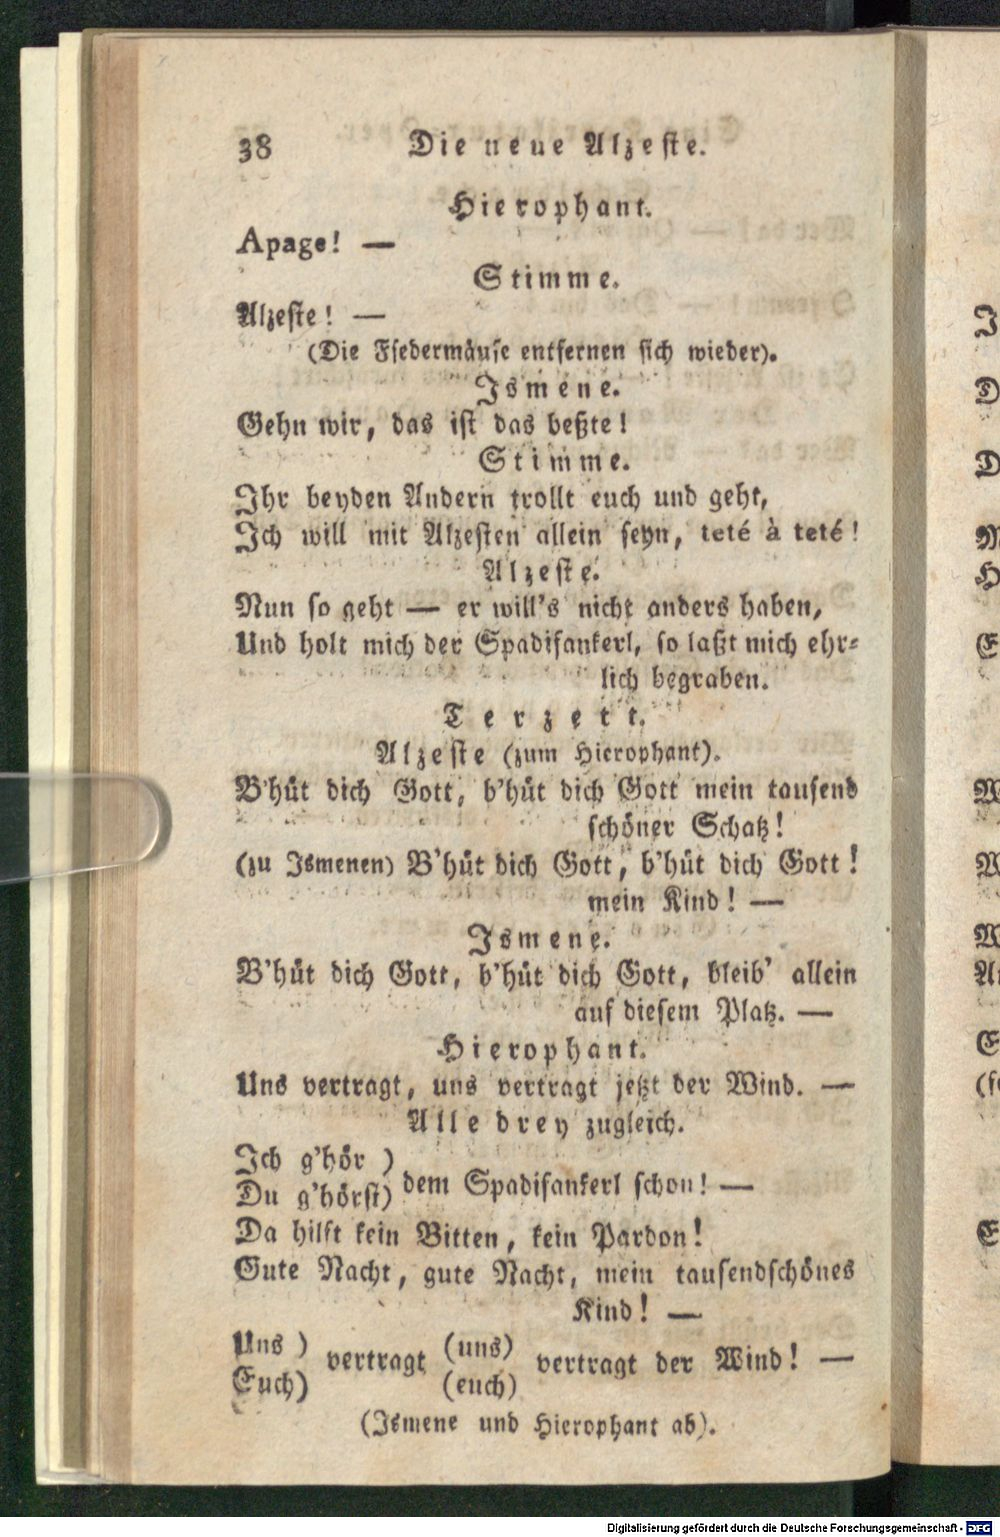 38 Die neue Alzeste.
Hierophant.
Apage! —
Stimme.
Alzeste! —
(Die Fledermäuse entfernen sich wieder).
Ismene.
Gehn wir, das ist das beßte!
Stimme.
Ihr beyden Andern trollt euch und geht,
Ich will mit Alzesten allein seyn, teté à teté!
Alzeste.
Nun so geht — er will's nicht anders haben,
Und holt mich der Spadifankerl, so laßt mich ehr-
lich begraben.
Terzett.
Alzeste (zum Hierophant).
B'hüt dich Gott, b'hüt dich Gott mein tausend
schöner Schatz!
(zu Ismenen) B'hüt dich Gott, b'hüt dich Gott!
mein Kind! —
Ismene.
B'hüt dich Gott, b'hüt dich Gott, bleib' allein
auf diesem Platz. —
Hierophant.
Uns vertragt, uns vertragt jetzt der Wind. —
Alle drey zugleich.
Ich g'hör )
Du g'hörst) dem Spadifankerl schon! —
Da hilft kein Bitten, kein Pardon!
Gute Nacht, gute Nacht, mein tausendschönes
Kind! —
Uns ) vertragt (uns) vertragt der Wind! —
Euch) (euch)
(Ismene und Hierophant ab).
I
D
D
M
H
E
M
W
W
E
(fe
E
Digitalisierung gefördert durch die Deutsche Forschungsgemeinschaft - DFG